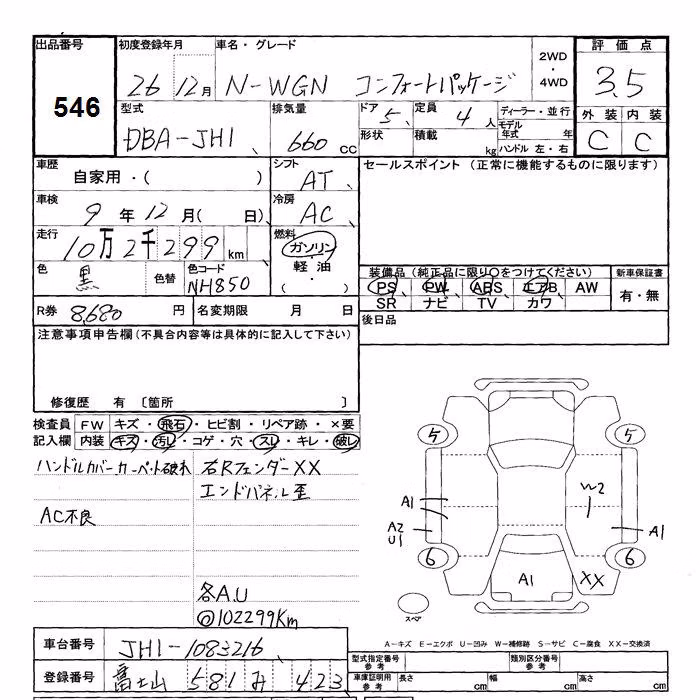 出品番号 初度登録年月 車名・グレード 2WD・4WD 評価点
546 26 12月 N-WGN コンフォートパッケージ 3.5
型式 排気量 ドア 5 定員 4人 ディーラー・並行 外装 内装
DBA-JH1 660 cc 形状 積載 kg モデル年式 年 C C
ハンドル 左・右
車歴 シフト セールスポイント (正常に機能するものに限ります)
自家用・( ) AT
車検 冷房
9年12月( 日) AC
走行 燃料
10万2千299km ガソリン・軽油・( )
色 黒 色替 色コード NH850 装備品 (純正品に限り○をつけてください) 新車保証書
PS PW ABS エアB AW 有・無
SR ナビ TV カワ
R券 8,680円 名変期限 月 日 後日品
注意事項申告欄 (不具合内容等は具体的に記入して下さい)
修復歴 有 〔箇所 〕
検査員記入欄 FW キズ・飛石・ヒビ割・リペア跡・×要
内装 キズ・汚レ・コゲ・穴・スレ・キレ・破レ
ハンドルカバー カーペット破れ 右Rフェンダー XX
エンドパネル歪
AC不良
各A.U
◎102299Km
5 5
A1 W2
A2 A1
U1
6 6
A1 XX
スペア
A-キズ E-エクボ U-凹み W-補修跡 S-サビ C-腐食 XX-交換済
車台番号 JH1-1083216 型式指定番号 参考 類別区分番号 参考
登録番号 富士山 581 み 423 車庫証明用 参考 長さ cm 幅 cm 高さ cm